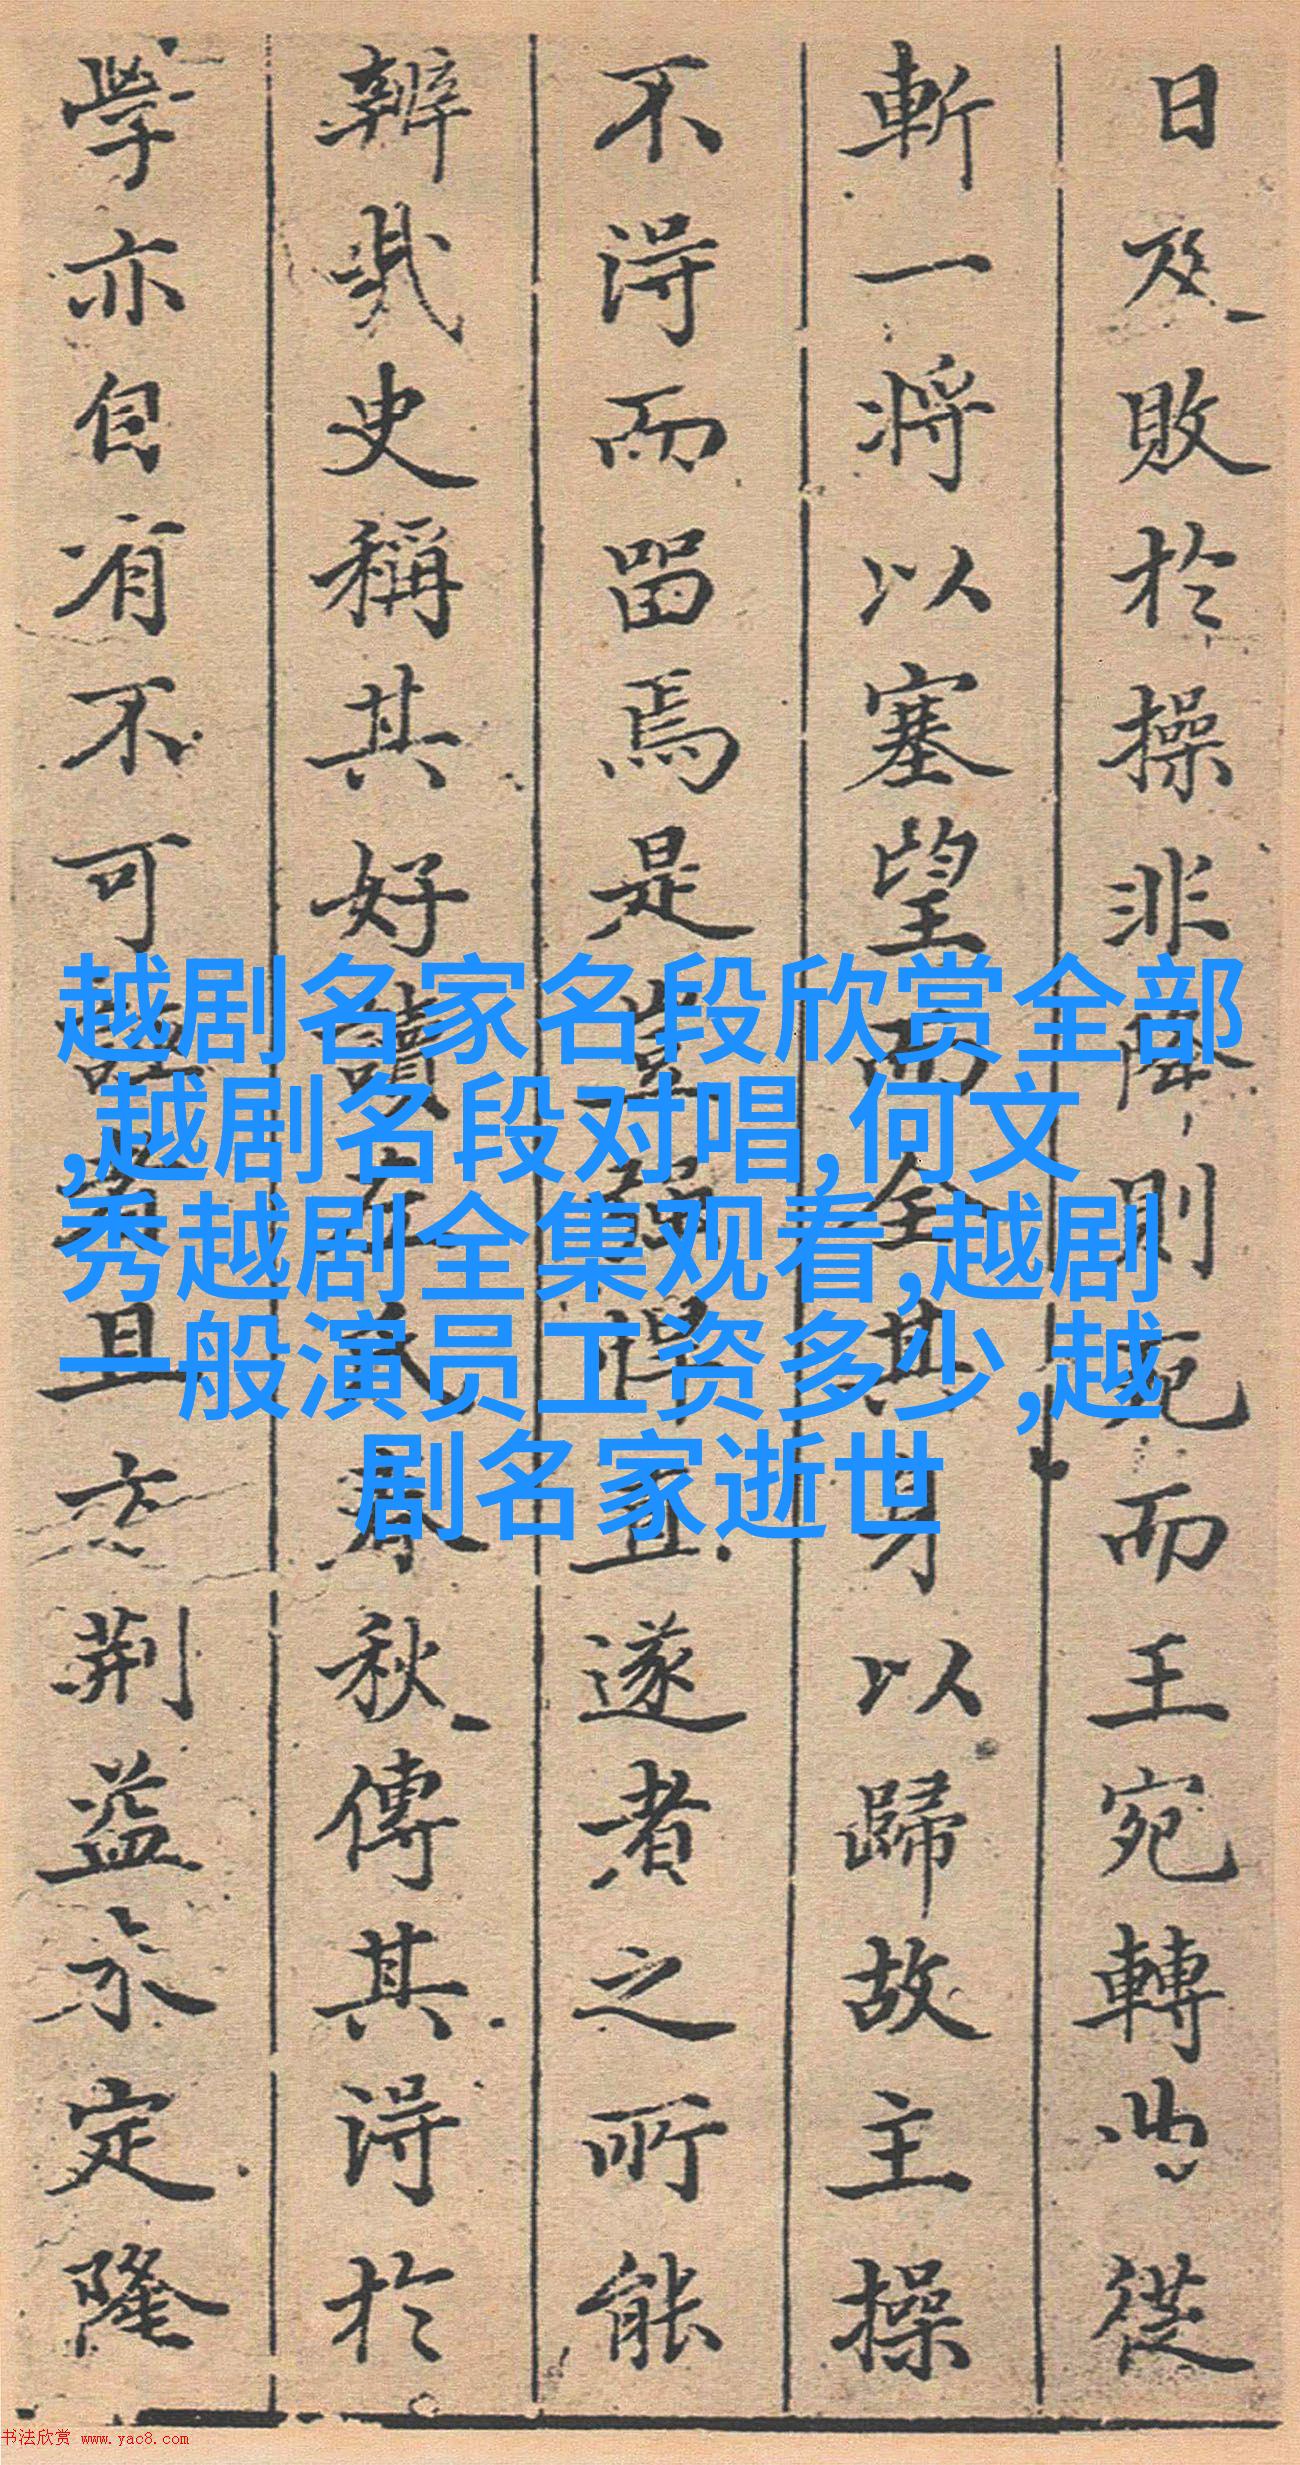 日及敗於操非降則死而王宛轉曲從
斬一將以塞望而全其身以歸故主操
不得而留焉是豈強悍直遂者之所能
辨哉史稱其好讀左氏春秋傳其得於
學亦自有不可誣者且方荆益未定隆
越剧名家名段欣赏全部
,越剧名段对唱,何文
秀越剧全集观看,越剧
一般演员工资多少,越
剧名家逝世
书法欣赏 www.yac8.com